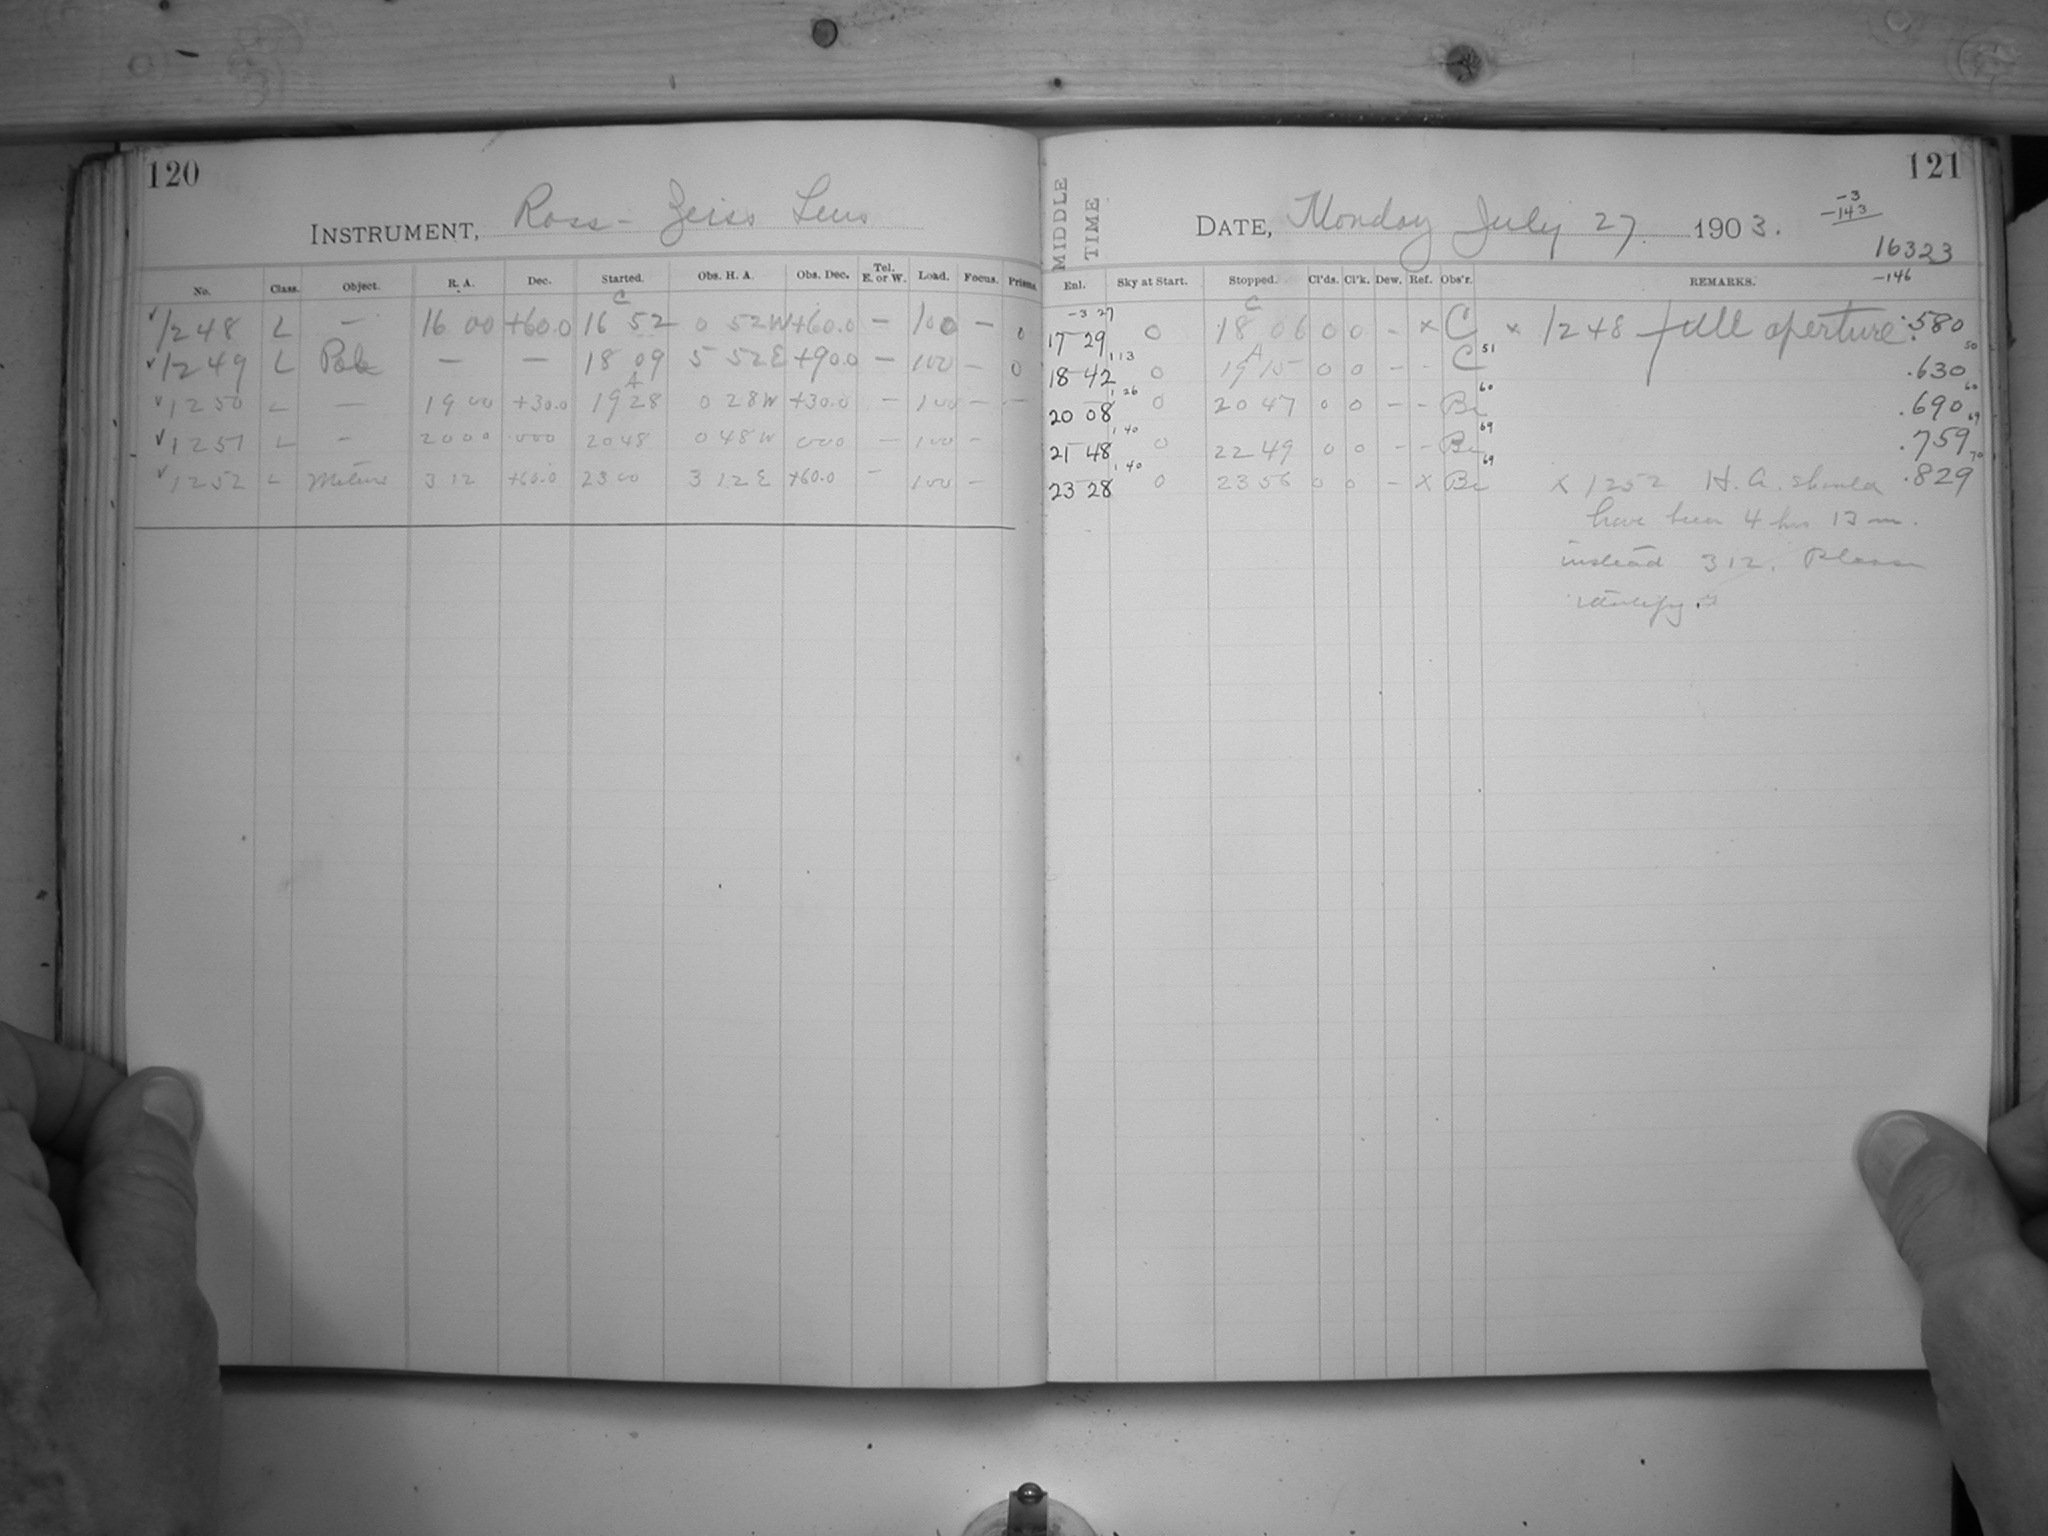 120
INSTRUMENT, Ross-Zeiss Lens
No. Class. Object. R. A. Dec. Started. Obs. H. A. Obs. Dec. Tel. E. or W. Load. Focus. Prisms.
C
√ 1248 L — 16 00 +60.0 16 52 0 52W +60.0 — 100 — 0
√ 1249 L Pole — — 18 09 5 52E +90.0 — 100 — 0
A
√ 1250 L — 19 00 +30.0 19 28 0 28W +30.0 — 100 — —
√ 1251 L — 20 00 000 20 48 0 48W 000 — 100 —
√ 1252 L Meteors 3 12 +60.0 23 00 3 12E +60.0 — 100 —
121
MIDDLE TIME
DATE, Monday July 27. 1903.
-3
-143
16323
-146
Enl. Sky at Start. Stopped. Cl'ds. Cl'k. Dew. Ref. Obs'r. REMARKS.
-3 27 C
17 29 0 18 06 0 0 - × C × 1248 full aperture .580
1 13 A 51 50
18 42 0 19 15 0 0 - - C .630
1 26 60 60
20 08 0 20 47 0 0 - - Be .690
1 40 69 69
21 48 0 22 49 0 0 - - Be .759
1 40 69 70
23 28 0 23 56 0 0 - × Be × 1252 H. A. should .829
have been 4 hrs 12 m.
instead 3 12. Please